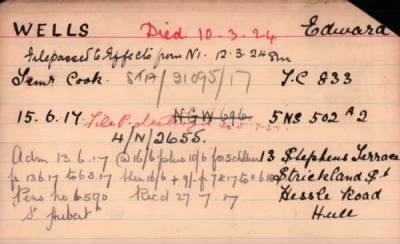 WELLS Died 10-3-24 Edward
File passed to Effects from N1. 12-3-24
Senr Cook. STA/21095/17 T.C 833
15.6.17. File P. NGW 696 5 NS 502 A2
4/N/2655.
Adm 13.6.17 @ 16/6 plus 10/6 for 3 chldren 13 Stephens Terrace
fr 13.6.17 to 6.8.17 then 16/6 + 9/- fr 7.8.17 Strickland St
Pens no. 6590 Recd 27.7.17 Hessle Road
S. Hubert Hull